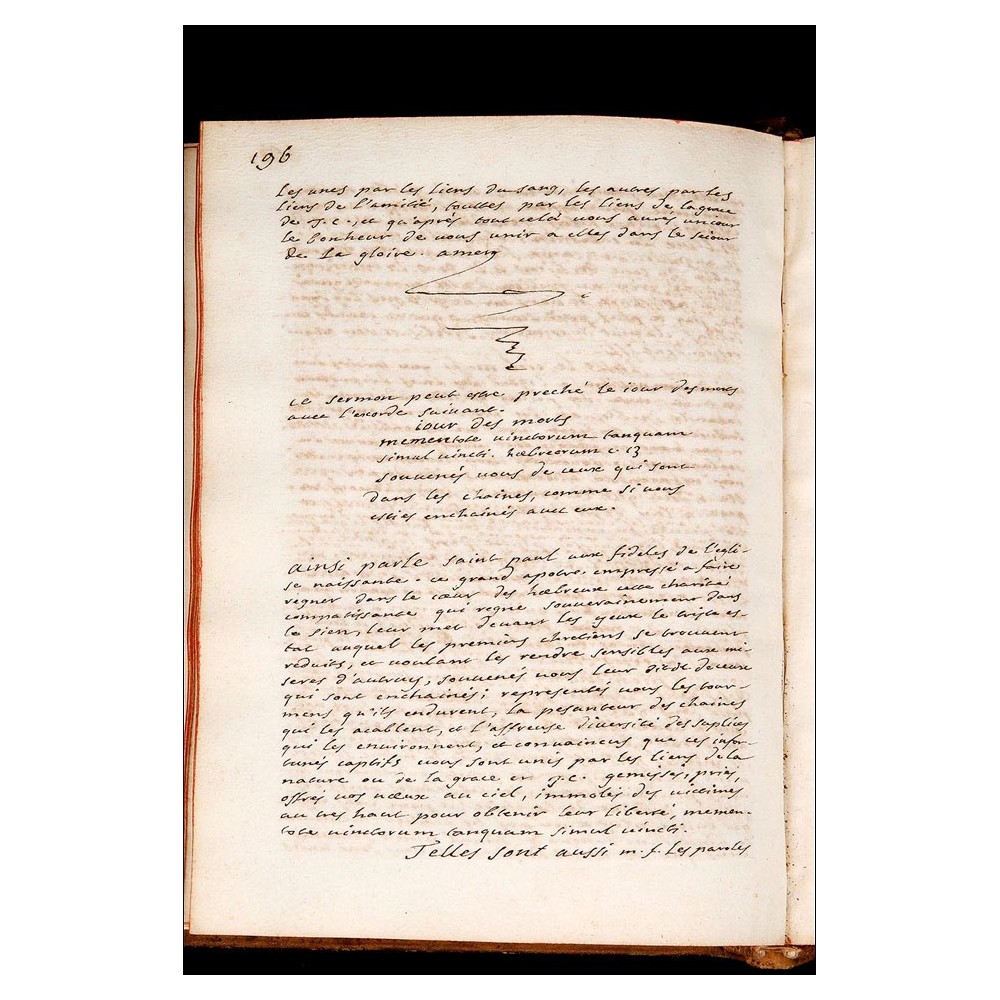 196
les unes par les liens du sang, les autres par les
liens de l'amitié, touttes par les liens de la grace
de J. C., et qu'aprés tout celà vous aures un iour
le bonheur de vous unir a elles dans le seiour
de la gloire. amen
ce sermon peut estre preché le iour des morts
avec l'exorde suivant.
iour des morts
mementote vinctorum tanquam
simul vincti. hæbreorum c 13
souvenés vous de ceux qui sont
dans les chaines, comme si vous
esties enchainés avec eux.
ainsi parle saint paul aux fideles de l'egli-
se naissante. ce grand apotre, empressé a faire
regner dans le cœur des hæbreux cette charité
compatissante qui regne souverainement dans
le sien, leur met devant les yeux le triste es-
tat auquel les premiers chretiens se trouvent
reduits, et voulant les rendre sensibles aux mi-
seres d'autruy, souvenés vous leur dit-il de ceux
qui sont enchainés; representes vous les tour-
mens qu'ils endurent, la pesanteur des chaines
qui les acablent, et l'affreuse diversité des suplices
qui les environnent, et convaincus que ces infor-
tunés captifs vous sont unis par les liens de la
nature ou de la grace en J. C. gemissés, priés,
offrés vos vœux au ciel, immolés des victimes
au tres haut pour obtenir leur liberté, memen-
tote vinctorum tanquam simul vincti.
Telles sont aussi m. f. les paroles